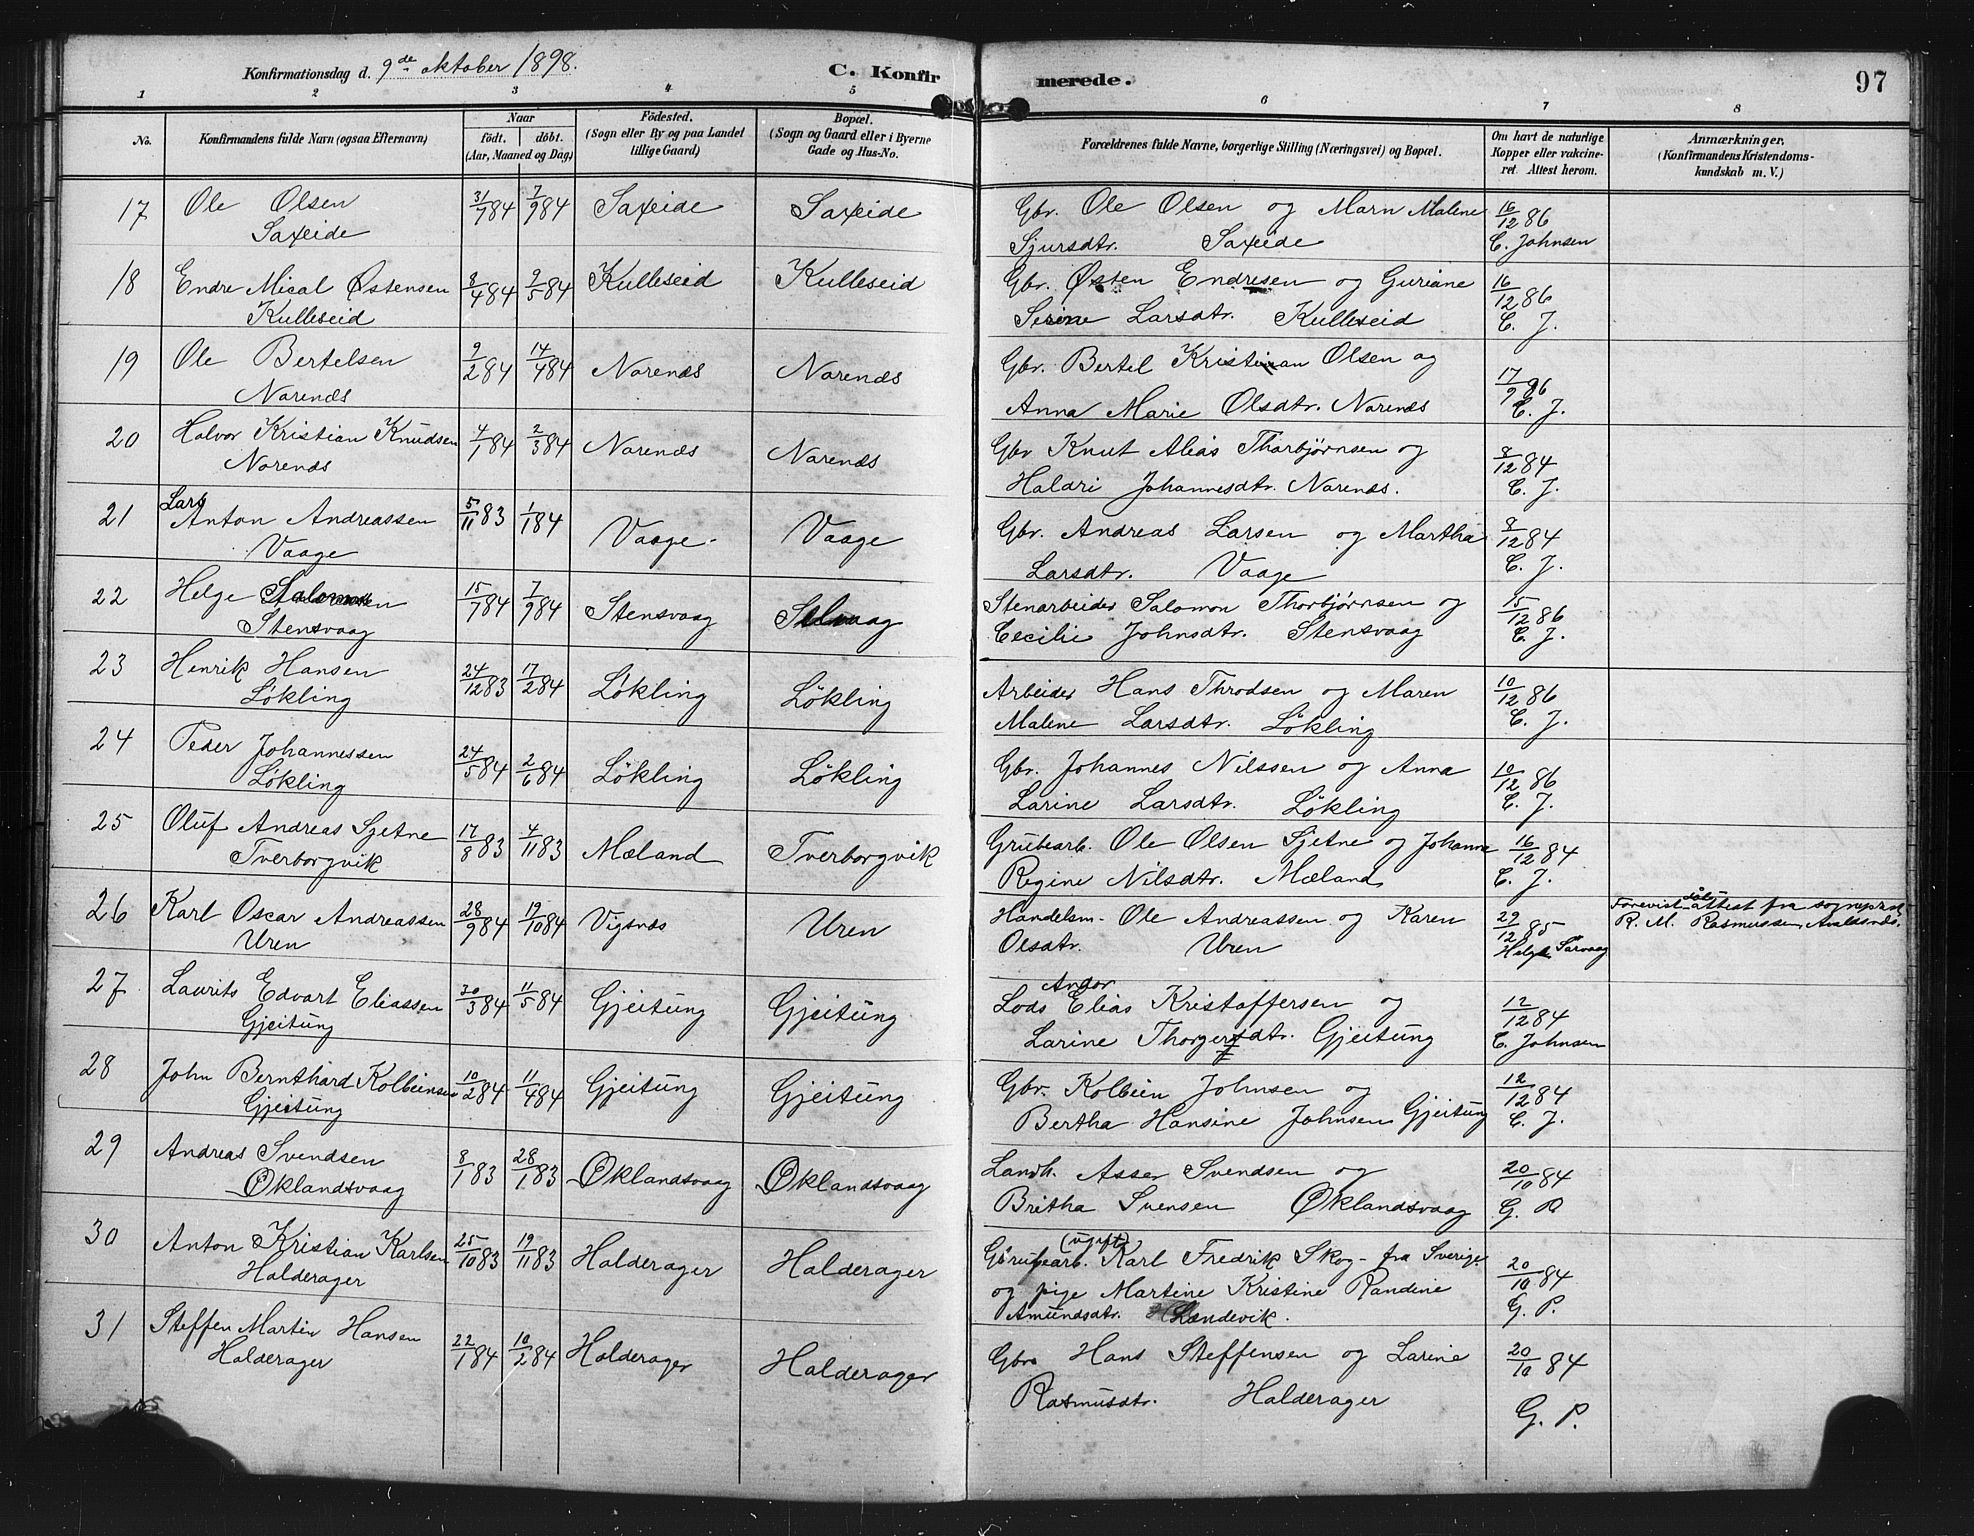 Konfirmationsdag d. 9de oktober 1898. C. Konfirmerede. 97
1 2 3 4 5 6 7 8
No. Konfirmandens fulde Navn (ogsaa Efternavn) Naar födt. döbt. (Aar, Maaned og Dag) Födested. (Sogn eller By og paa Landet tillige Gaard) Bopæl. (Sogn og Gaard eller i Byerne Gade og Hus-No. Forældrenes fulde Navne, borgerlige Stilling (Næringsvei) og Bopæl. Om havt de naturlige Kopper eller vakcineret. Attest herom. Anmærkninger. (Konfirmandens Kristendomskundskab m. V.)
17 Ole Olsen 31/7 84 7/9 84 Saxeide Saxeide Gbr. Ole Olsen og Marn Malene 16/12 86
Saxeide Sjursdtr. Saxeide C. Johnsen
18 Endre Mical Østensen 3/4 84 2/5 84 Kulleseid Kulleseid Gbr. Østen Endresen og Guriane 16/12 86
Kulleseid Serine Larsdtr. Kulleseid C. J.
19 Ole Bertelsen 9/2 84 14/4 84 Norenæs Norenæs Gbr. Bertel Kristian Olsen og 17/9 86
Norenæs Anna Marie Olsdtr. Norenæs C. J.
20 Halvor Kristian Knudsen 4/1 84 2/3 84 Norenæs Norenæs Gbr Knut Alias Thorbjørnsen og 8/12 84
Norenæs Haldri Johannesdtr. Norenæs. C. J.
21 Lars Anton Andreassen 5/11 83 1/1 84 Vaage. Vaage Gbr. Andreas Larsen og Martha 8/12 84
Vaage Larsdtr. Vaage C. J.
22 Helge Salomonsen 15/7 84 7/9 84 Stensvaag Selvaag Stenarbeider Salomon Thorbjørnsen og 15/12 86
Stensvaag Cecilie Johnsdtr. Stensvaag C. J.
23 Henrik Hansen 24/12 83 17/2 84 Løkling Løkling Arbeider Hans Throdsen og Maren 10/12 86
Løkling Malene Larsdtr. Løkling C. J.
24 Peder Johannessen 24/5 84 2/6 84 Løkling Løkling Gbr. Johannes Nilssen og Anna 10/12 86
Løkling Larine Larsdtr. Løkling C. J.
25 Oluf Andreas Sjetne 17/8 83 4/11 83 Mæland Tverborgvik Grubearb. Ole Olsen Sjetne og Johanne 16/12 84
Tverborgvik Regine Nilsdtr. Mæland C. J.
26 Karl Oscar Andreassen 28/9 84 19/10 84 Vigsnæs Uren Handelsm. Ole Andreassen og Karen 29/12 85 Forevist attest fra sognepr.
Uren Olsdtr. Uren Helge Sørvaag R. M. Rasmussen, Avaldsnæs.
27 Laurits Edvart Eliassen 30/3 84 11/5 84 Gjeitung Gjeitung Lods Andor Elias Kristoffersen og 12/12 84
Gjeitung Larine Thorgersdtr. Gjeitung C. Johnsen
28 John Bernthard Kolbeinsen 10/2 84 11/4 84 Gjeitung Gjeitung Gbr. Kolbein Johnsen og 12/12 84
Gjeitung Bertha Hansine Johnsen Gjeitung C. J.
29 Andreas Svendsen 8/1 83 28/1 83 Øklandsvaag Øklandsvaag Landh. Asser Svendsen og 20/10 84
Øklandsvaag Britha Svensen Øklandsvaag G. P.
30 Anton Kristian Karlsen 25/10 83 19/11 83 Halderager Halderager Grubearb. (ugift) Karl Fredrik Skog - fra Sverige 20/10 84
Halderager og pige Martine Kristine Randine G. P.
Amundsdtr. Landevik.
31 Steffen Martin Hansen 22/1 84 10/2 84 Halderager Halderager Gbr. Hans Steffensen og Larine 20/10 84
Halderager Rasmusdtr. Halderager G. P.